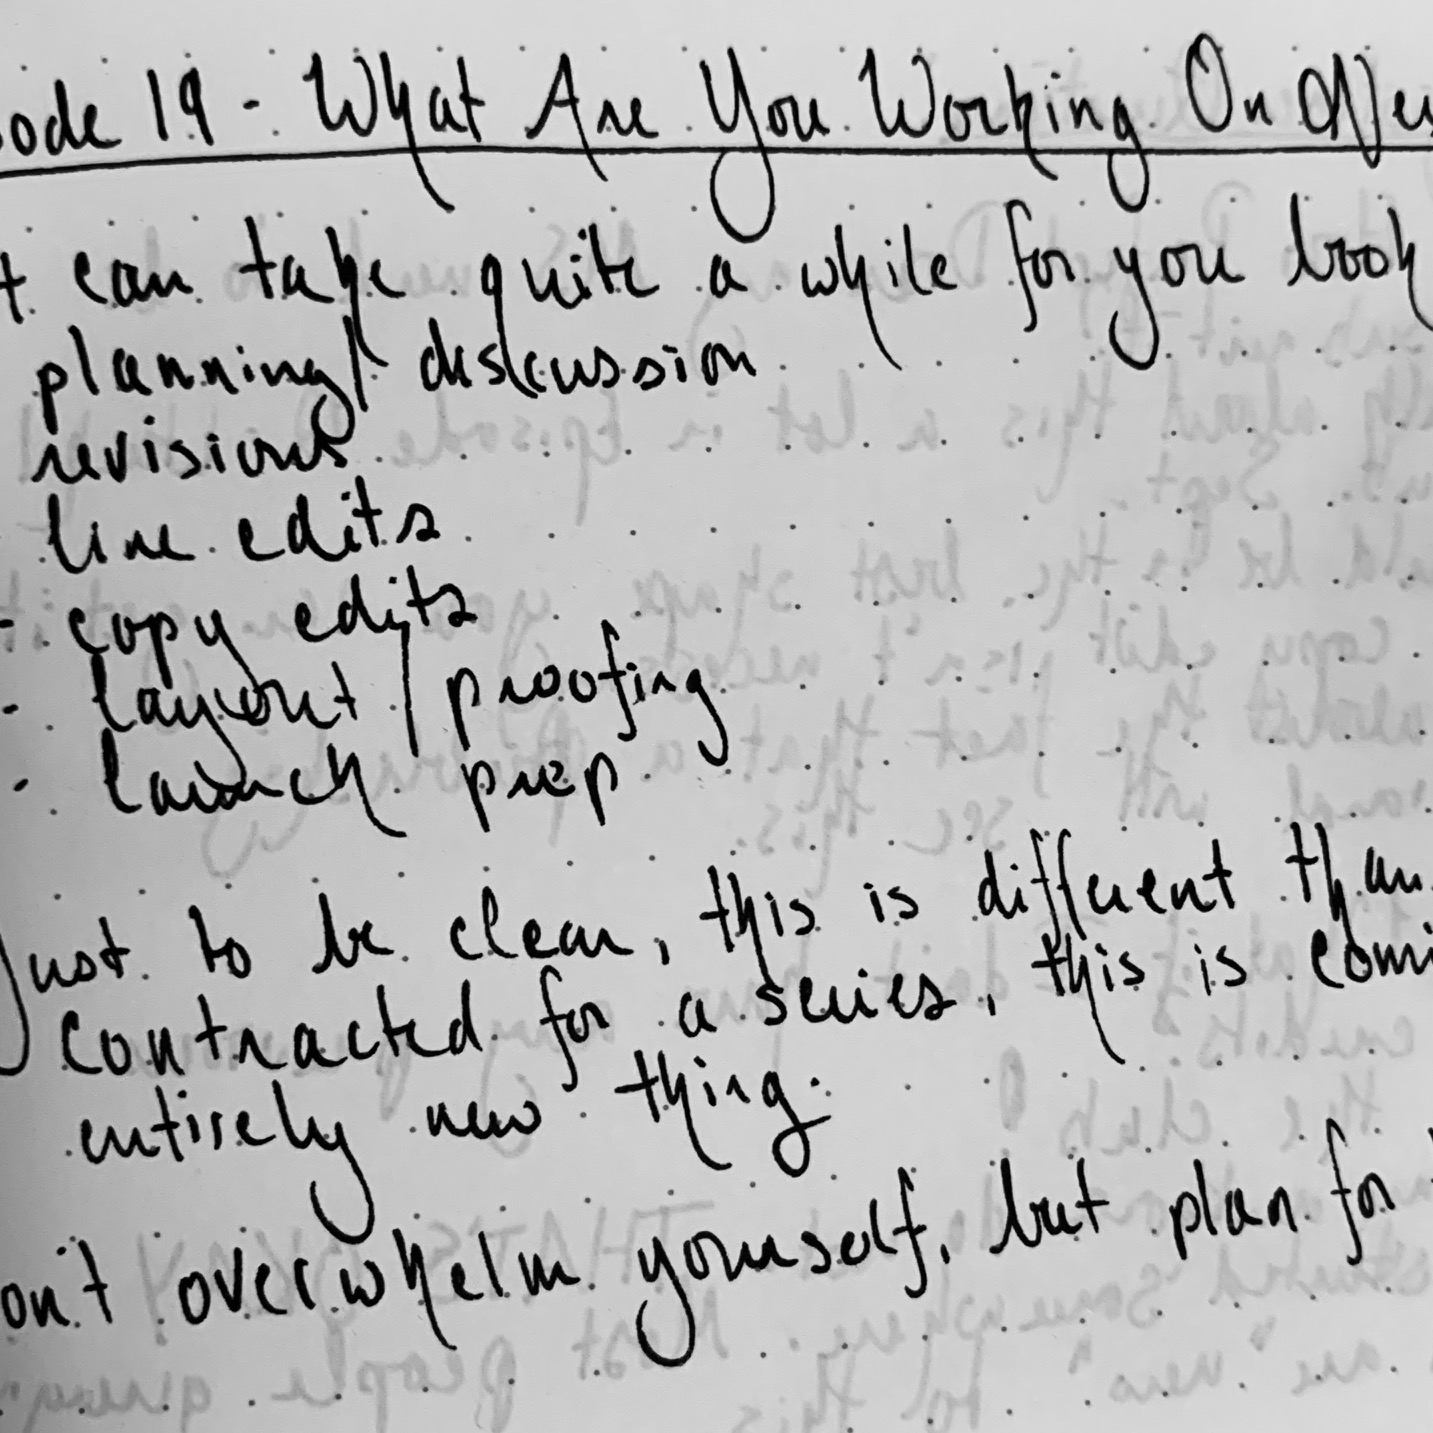 ode 19 - What Are You Working On
t can take quite a while for you book
planning/discussion
revisions
line edits
- copy edits
- layout/proofing
- launch prep
Just to be clear, this is different than
contracted for a series, this is comi
entirely new thing.
on't overwhelm yourself, but plan for